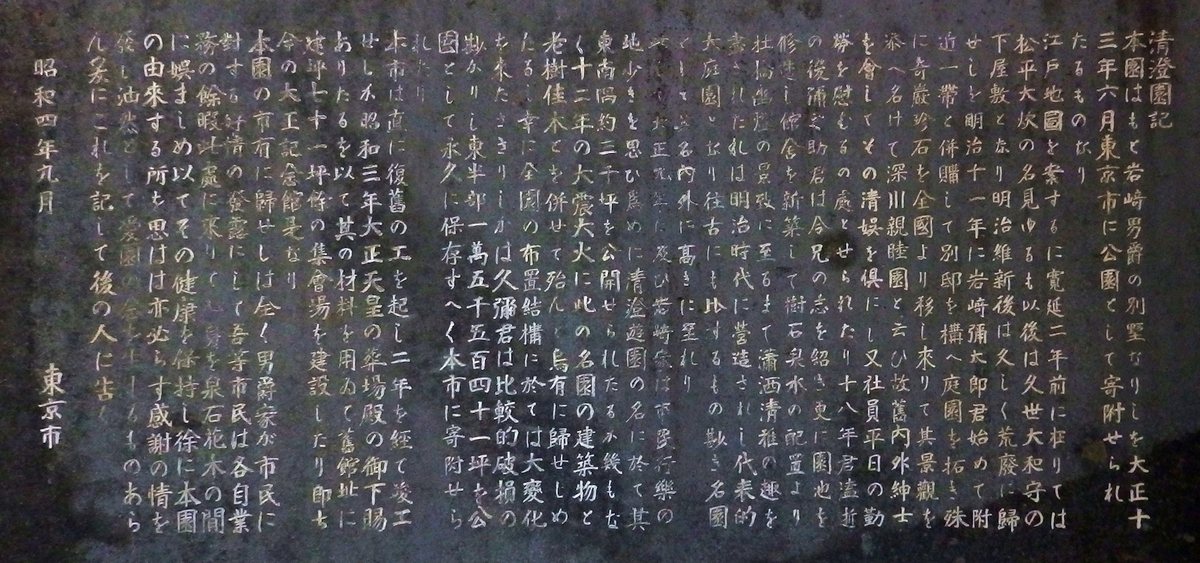 清澄園記
本園はもと岩﨑男爵の別墅なりしを大正十
三年六月東京市に公園として寄附せられ
たるものなり
江戸地圖を案するに寛延二年前に在りては
松平大炊の名見ゆるも以後は久世大和守の
下屋敷となり明治維新後は久しく荒廢に歸
せしを明治十一年に岩﨑彌太郎君始めて附
近一帶と併購して別邸を構へ庭園を拓き殊
に奇巖珍石を全國より移し來りて其景觀を
添へ名けて深川親睦園と云ひ故舊内外紳士
を會してその清娯を俱にし又社員平日の勤
勞を慰むるの處とせられたり十八年君逝
の後彌之助君は令兄の志を紹き更に園池を
修造し館舍を新築して樹石泉水の配置より
牡の景致に至るまて瀟洒清雅の趣を
されたれは明治時代に營造されし代表的
大庭園となり往古にも比するもの尠き名園
として其名内外に高きに至れり
大正に及ひ岩﨑家は市民行樂の
地少きを思ひ爲めに清澄遊園の名に於て其
東南隅約三千坪を公開せられたるか幾もな
く十二年の大震大火に此の名園の建築物と
老樹佳木とを併せて殆んと烏有に歸せしめ
たるも幸に全園の布置結構に於ては大變化
を來たささりしかは久彌君は比較的破損の
尠かりし東半部一萬五千五百四十一坪を公
園として永久に保存すへく本市に寄附せら
れたり
本市は直に復舊の工を起し二年を經て竣工
せしか昭和三年大正天皇の葬場殿の御下賜
ありたるを以て其の材料を用ゐて舊館址に
建坪七十一坪餘の集會場を建設したり卽ち
今の大正記念館是なり
本園の市有に歸せしは全く男爵家が市民に
對する好情の發露にして吾等市民は各自業
務の餘暇此處に來りて心身を泉石花木の間
に娯ましめ以てその健康を保持し徐に本園
の由來する所を思はは亦必らす感謝の情を
發し油然として愛園の念を生しるものあら
ん爰にこれを記して後の人に告く
昭和四年九月
東京市